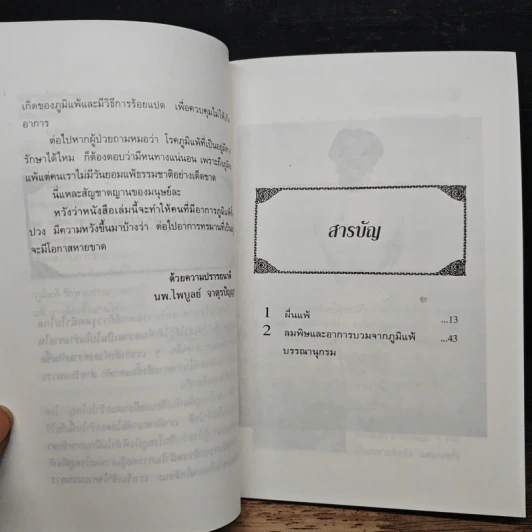 เกิดของภูมิแพ้และมีวิธีการร้อยแปด เพื่อควบคุมไม่ให้เกิด
อาการ
ต่อไปหากผู้ป่วยถามหมอว่า โรคภูมิแพ้ที่เป็นอยู่มีทาง
รักษาได้ไหม ก็ต้องตอบว่ามีหนทางแน่นอน เพราะถึงภูมิ
แพ้แต่คนเราไม่มีวันยอมแพ้ธรรมชาติอย่างเด็ดขาด
นี่แหละสัญชาตญาณของมนุษย์ละ
หวังว่าหนังสือเล่มนี้จะทำให้คนที่มีอาการภูมิแพ้ทั้ง
ปวง มีความหวังขึ้นมาบ้างว่า ต่อไปอาการทรมานที่เป็น
จะมีโอกาสหายขาด
ด้วยความปรารถนาดี
นพ.ไพบูลย์
สารบัญ
1 ผื่นแพ้ ...13
2 ลมพิษและอาการบวมจากภูมิแพ้ ...43
บรรณานุกรม